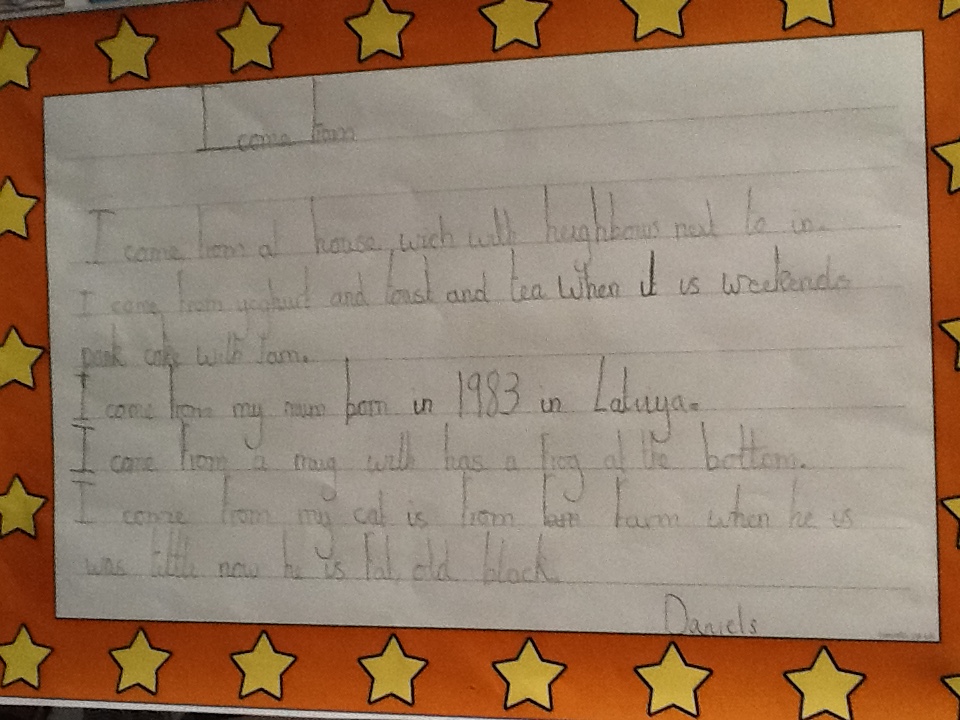 I come from
I come from a house, wich with heighbours next to in.
I come from yoghurt and toast and tea When it is weekends
pank cake with Jam.
I come from my mum born in 1983 in Latviya.
I come from a mug with has a frog at the bottom.
I come from my cat is from farm when he is
was little now he is fat, old black.
Daniels